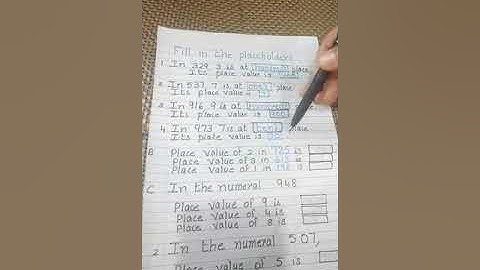 Fill in the placeholders
1. In 329 3 is at hundreds place
Its place value is
2. In 537, 7 is at ones place
Its place value is 7
3. In 916 9 is at hundreds place
Its place value is 900
4. In 973 7 is at tens place
Its place value is
B Place value of 2 in 725 is
Place value of 3 in 613 is
Place value of 1 in 198 is
C In the numeral 948
Place value of 9 is
Place value of 4 is
Place value of 8 is
2 In the numeral 507,
Place value of 5 is